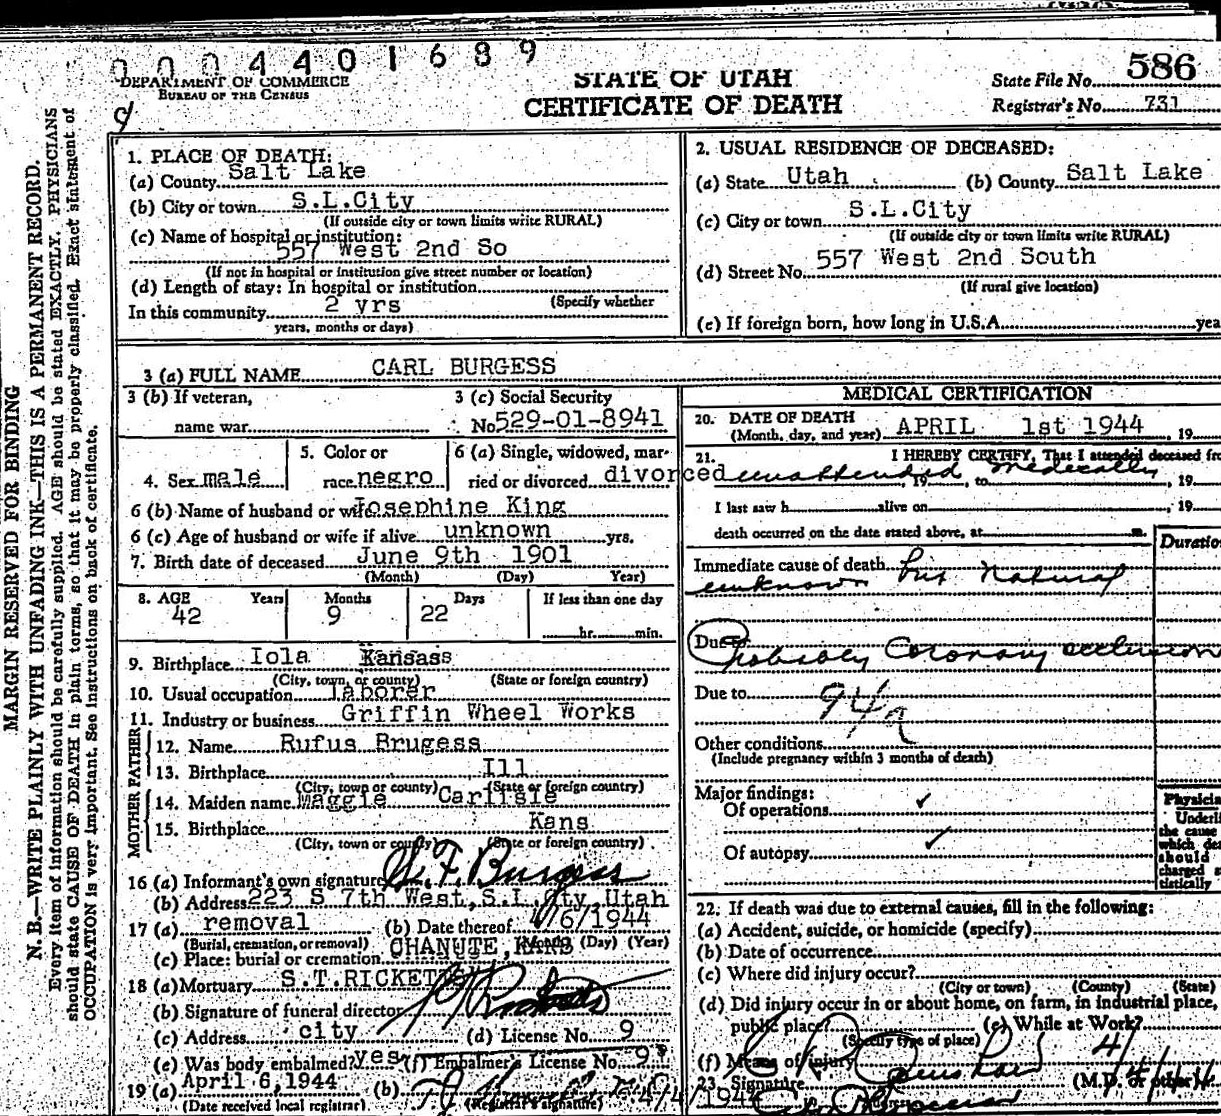 0 0 0 4 4 0 1 6 8 9
DEPARTMENT OF COMMERCE
BUREAU OF THE CENSUS
STATE OF UTAH
CERTIFICATE OF DEATH
State File No. 586
Registrar's No. 731
MARGIN RESERVED FOR BINDING
N. B.—WRITE PLAINLY WITH UNFADING INK—THIS IS A PERMANENT RECORD.
Every item of information should be carefully supplied. AGE should be stated EXACTLY. PHYSICIANS
should state CAUSE OF DEATH in plain terms, so that it may be properly classified. Exact statement of
OCCUPATION is very important. See instructions on back of certificate.
1. PLACE OF DEATH:
(a) County Salt Lake
(b) City or town S.L.City
(If outside city or town limits write RURAL)
(c) Name of hospital or institution:
557 West 2nd So
(If not in hospital or institution give street number or location)
(d) Length of stay: In hospital or institution
(Specify whether
In this community 2 yrs
years, months or days)
2. USUAL RESIDENCE OF DECEASED:
(a) State Utah (b) County Salt Lake
(c) City or town S.L.City
(If outside city or town limits write RURAL)
(d) Street No. 557 West 2nd South
(If rural give location)
(e) If foreign born, how long in U.S.A. yea
3 (a) FULL NAME CARL BURGESS
3 (b) If veteran,
name war
3 (c) Social Security
No 529-01-8941
4. Sex male
5. Color or
race negro
6 (a) Single, widowed, mar-
ried or divorced divorced
6 (b) Name of husband or wife Josephine King
6 (c) Age of husband or wife if alive unknown yrs.
7. Birth date of deceased June 9th 1901
(Month) (Day) Year)
8. AGE Years Months Days If less than one day
42 9 22
hr. min.
9. Birthplace Iola Kansass
(City, town, or county) (State or foreign country)
10. Usual occupation laborer
11. Industry or business Griffin Wheel Works
FATHER
12. Name Rufus Brugess
13. Birthplace Ill
(City, town or county) (State or foreign country)
MOTHER
14. Maiden name Maggie Carlisle
15. Birthplace Kans
(City, town or county) (State or foreign country)
16 (a) Informant's own signature Burgess
(b) Address 223 S 7th West, S.L.City, Utah
17 (a) removal (b) Date thereof 4/6/1944
(Burial, cremation, or removal) (Month) (Day) (Year)
(c) Place: burial or cremation CHANUTE, KANS
18 (a) Mortuary S.T.RICKETT
(b) Signature of funeral director
(c) Address city (d) License No. 9
(e) Was body embalmed? yes (f) Embalmer's License No. 9
19 (a) April 6, 1944 (b)
(Date received local registrar) (Registrar's signature)
MEDICAL CERTIFICATION
20. DATE OF DEATH
(Month, day, and year) APRIL 1st 1944, 19
21. I HEREBY CERTIFY, That I attended deceased fro
unattended medically, 19 , to , 19
I last saw h alive on , 19
death occurred on the date stated above, at m.
Duration
Immediate cause of death
unknown but Natural
Due to
Probably Coronary occlusion
Due to 94a
Other conditions
(Include pregnancy within 3 months of death)
Major findings:
Of operations ✓
Of autopsy ✓
Physicia
Underli
the cause
which dea
should
charged s
tistically
22. If death was due to external causes, fill in the following:
(a) Accident, suicide, or homicide (specify)
(b) Date of occurrence
(c) Where did injury occur?
(City or town) (County) (State)
(d) Did injury occur in or about home, on farm, in industrial place,
public place? (e) While at Work?
(Specify type of place)
(f) Means of injury
23. Signature (M.D. or other)
4/4/1944